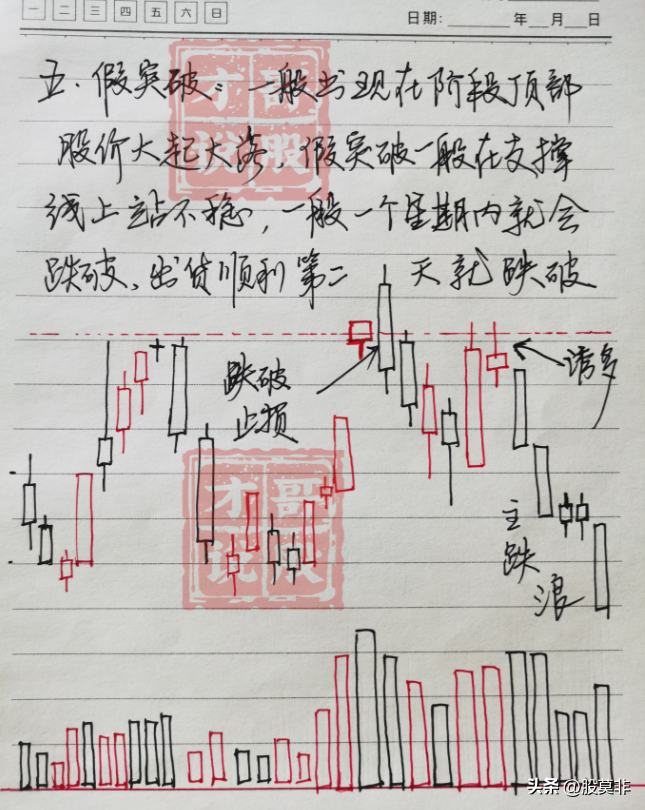 一 二 三 四 五 六 日
日期: 年 月 日
五、假突破: 一般出现在阶段顶部
股价大起大落,假突破一般在支撑
线上站不稳,一般一个星期内就会
跌破、出货顺利第二 天就跌破
跌破
止损
诱多
主
跌
浪
才哥
说股
才哥
说股
头条 @股莫非